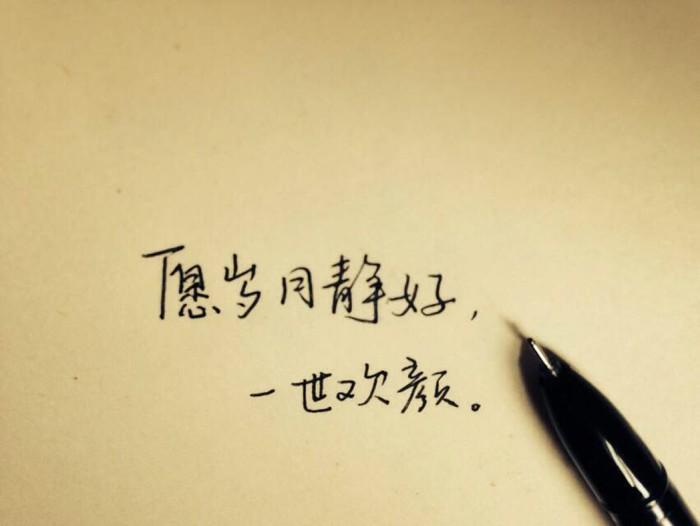 愿岁月静好，
一世欢颜。